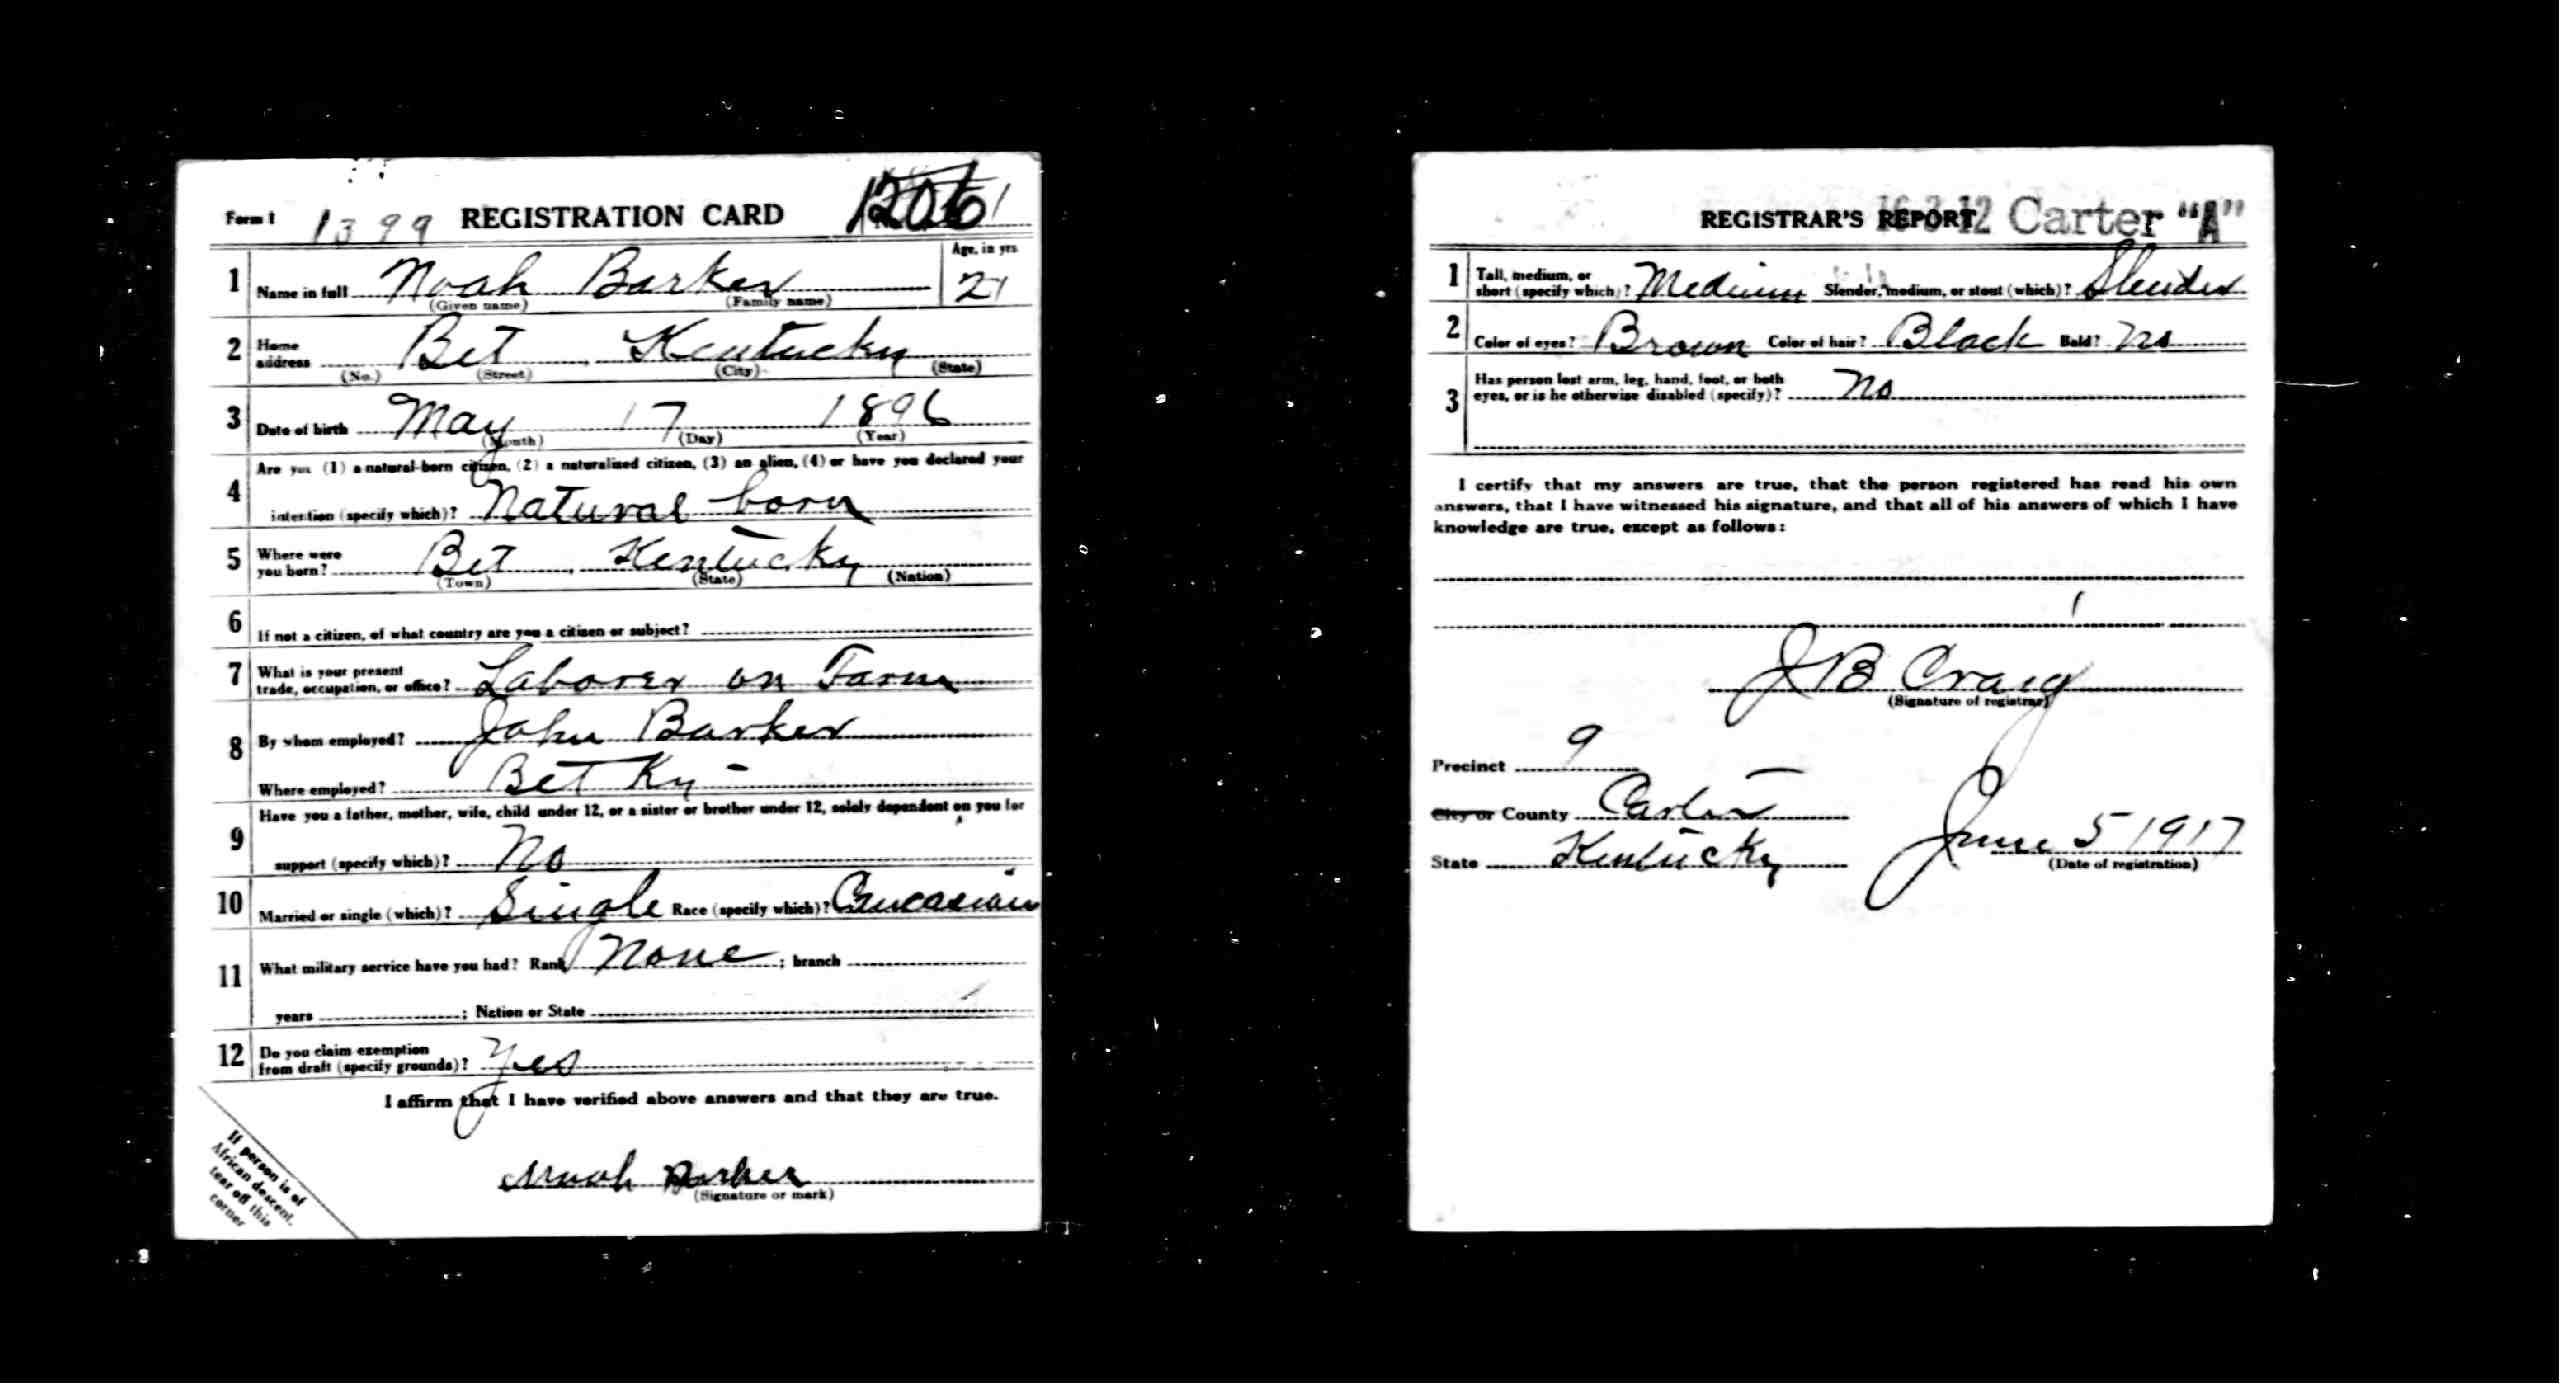 Form 1 1399 REGISTRATION CARD 1206 1
1 Name in full Noah Barker Age, in yrs 21
(Given name) (Family name)
2 Home address Bet Kentucky
(No.) (Street) (City) (State)
3 Date of birth May 17 1896
(Month) (Day) (Year)
4 Are you (1) a natural-born citizen, (2) a naturalized citizen, (3) an alien, (4) or have you declared your
intention (specify which)? Natural born
5 Where were you born? Bet Kentucky
(Town) (State) (Nation)
6 If not a citizen, of what country are you a citizen or subject?
7 What is your present
trade, occupation, or office? Laborer on Farm
8 By whom employed? John Barker
Where employed? Bet Ky -
9 Have you a father, mother, wife, child under 12, or a sister or brother under 12, solely dependent on you for
support (specify which)? No
10 Married or single (which)? Single Race (specify which)? Caucasian
11 What military service have you had? Rank None ; branch
years ; Nation or State
12 Do you claim exemption
from draft (specify grounds)? Yes
I affirm that I have verified above answers and that they are true.
Noah Barker
(Signature or mark)
If person is of
African descent,
tear off this
corner
REGISTRAR'S REPORT 16-3-12 Carter "A"
1 Tall, medium, or
short (specify which)? Medium Slender, medium, or stout (which)? Slender
2 Color of eyes? Brown Color of hair? Black Bald? No
3 Has person lost arm, leg, hand, foot, or both
eyes, or is he otherwise disabled (specify)? No
I certify that my answers are true, that the person registered has read his own
answers, that I have witnessed his signature, and that all of his answers of which I have
knowledge are true, except as follows:
J B Craig
(Signature of registrar)
Precinct 9
City or County Carter
State Kentucky June 5 1917
(Date of registration)